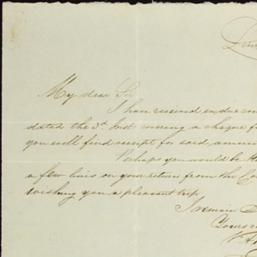 My dear Sir
I have received in due
dated the 3d Inst covering a cheque
you will find receipt for said
Perhaps you would be
a few lines on your return from the
wishing you a pleasant trip
I remain
Yours